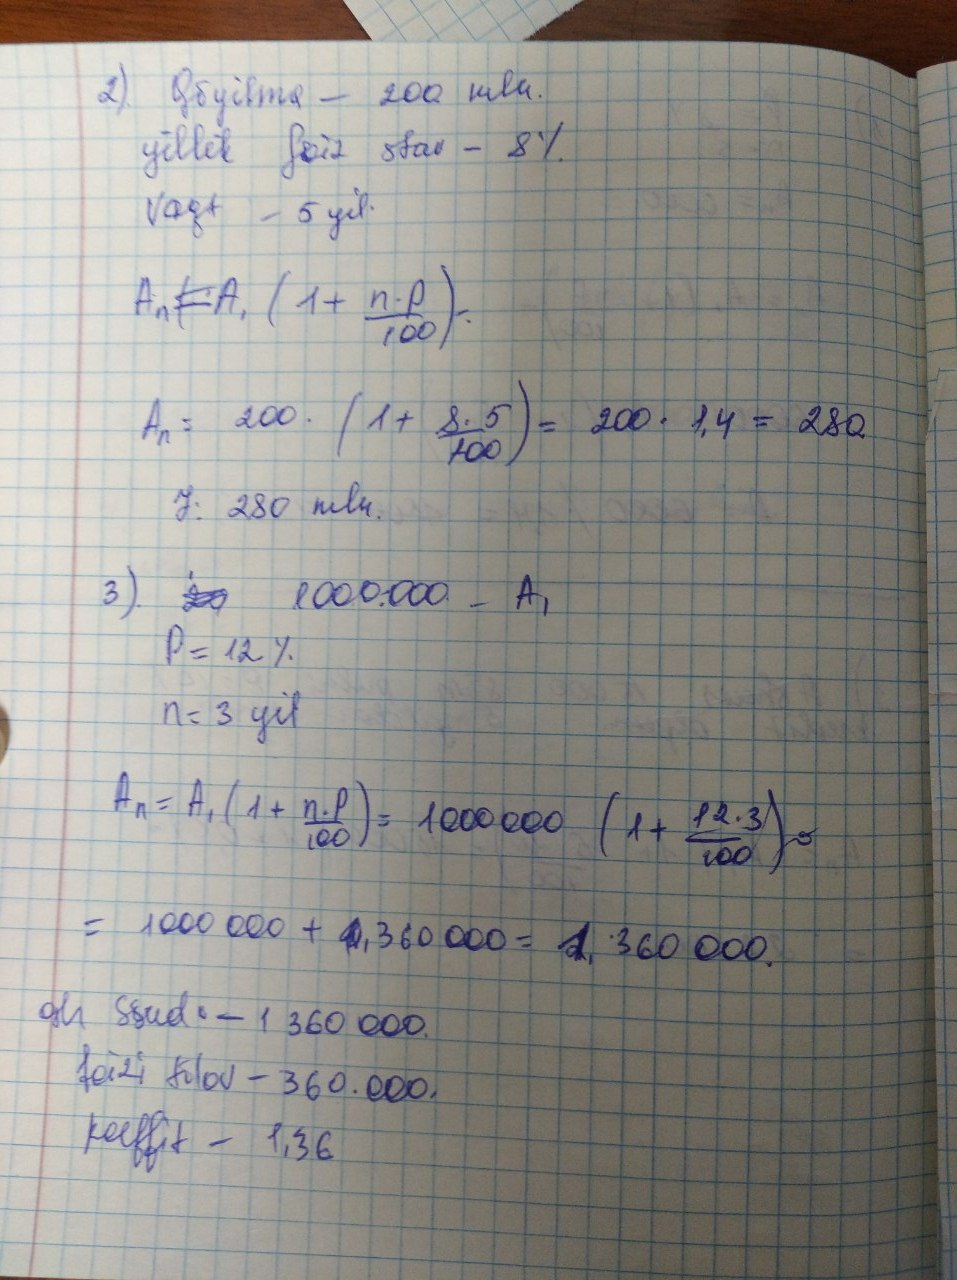 2). Qo'yilma – 200 mln.
yillik foiz stav – 8%.
Vaqt – 5 yil.
Aₙ = A₁ (1 + n·P/100) =
Aₙ = 200 · (1 + 8·5/100) = 200 · 1,4 = 280
J: 280 mln.
3). 1000.000 – A₁
P = 12%.
n = 3 yil
Aₙ = A₁ (1 + n·P/100) = 1000 000 (1 + 12·3/100) =
= 1000 000 + 360 000 = 1.360 000.
Ssuda – 1 360 000.
foizi to'lov – 360.000.
koeffit – 1,36